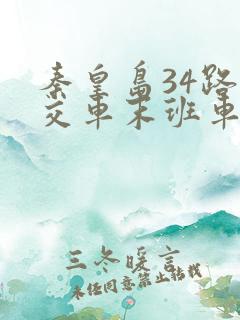 秦皇岛34路
交车末班车
三冬暖言
未经同意禁止转载